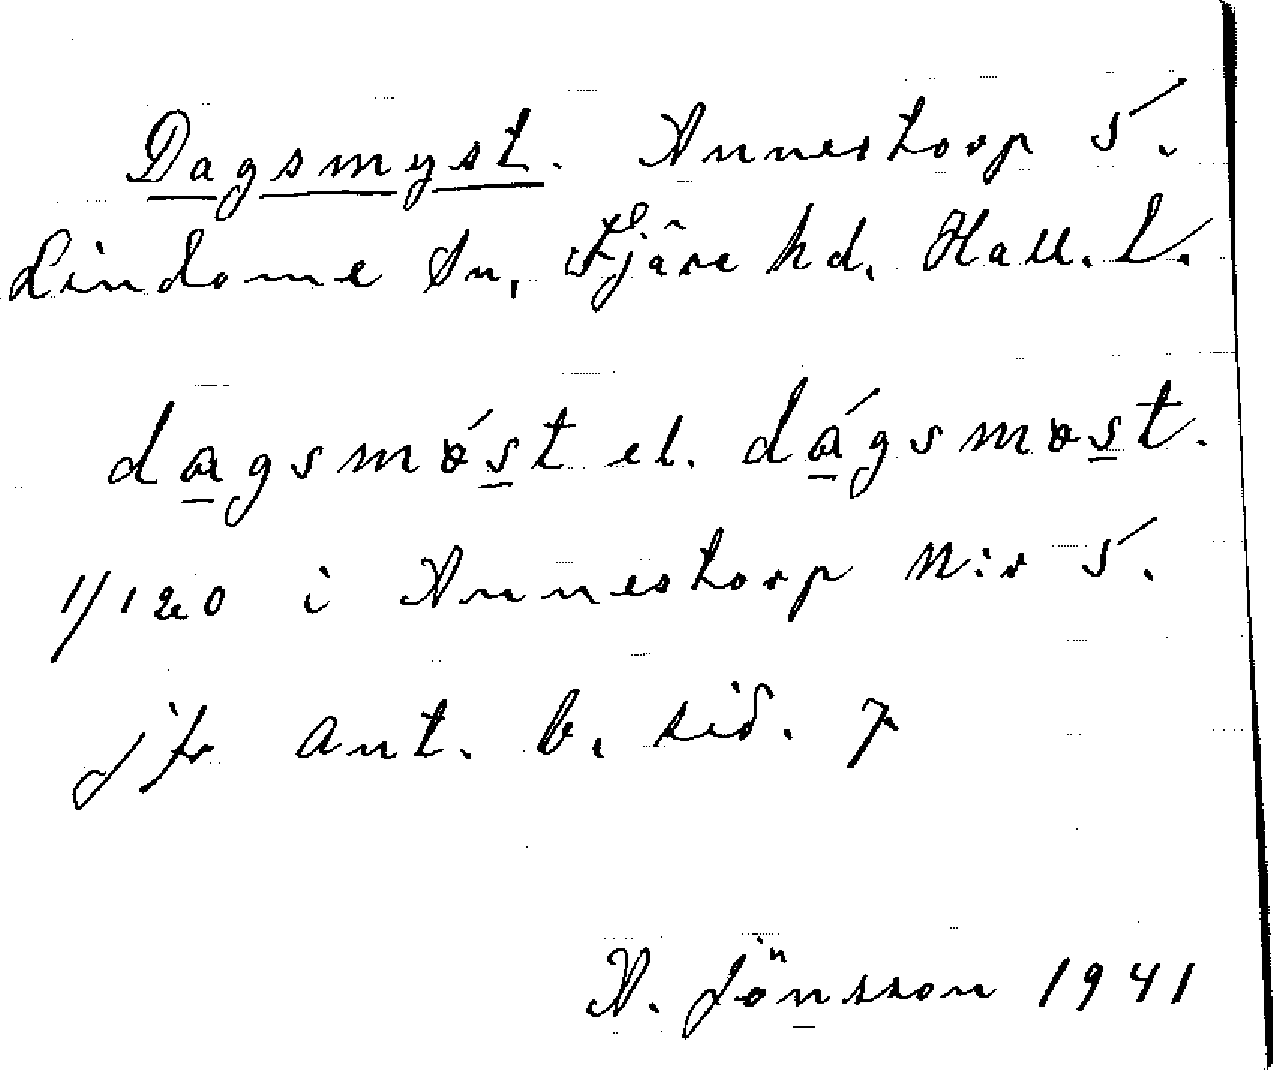 Dagsmyst. Annestorp 5.
Lindome Sn, Fjäre hd. Hall. L.
dagsmǿst el. dágsmøst.
1/120 i Annestorp N:r 5.
jfr Ant. b. sid. 7
A. Jönsson 1941